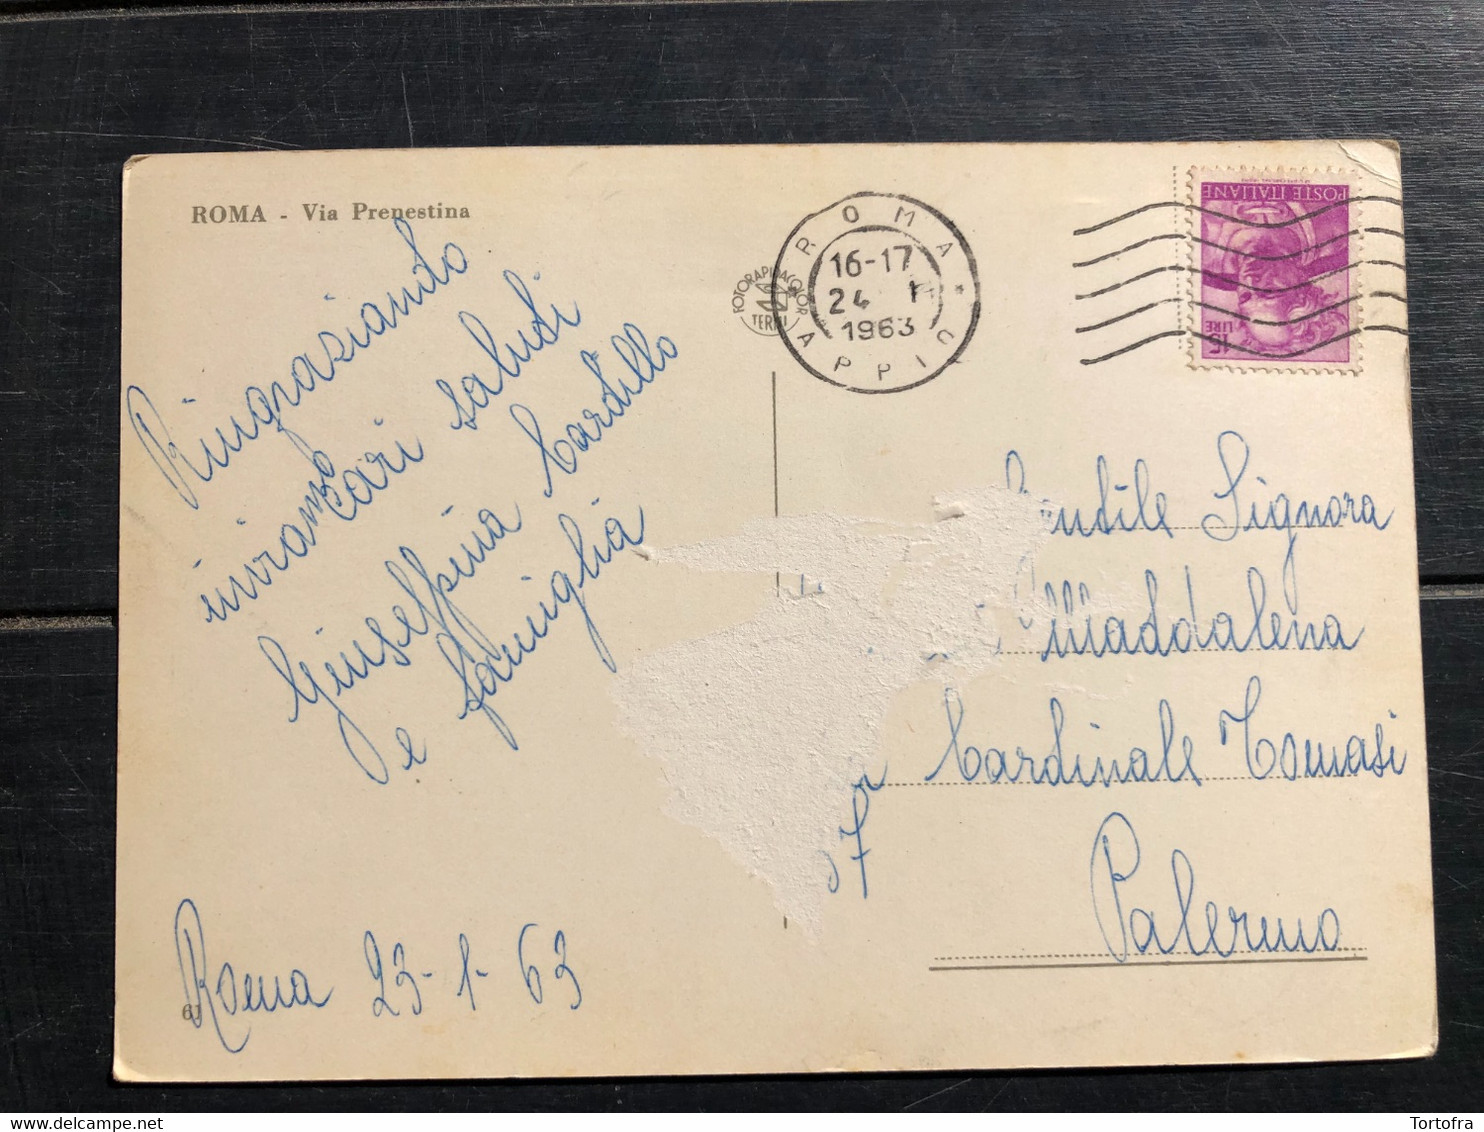 ROMA - Via Prenestina
Ringraziando
inviamo
cari saluti
Giuseppina Cardillo
e famiglia
Roma 23-1-63
61
FOTORAPIDACOLOR
TERNI
ROMA APPIO
16-17
24 1
1963
POSTE ITALIANE
15
LIRE
Gentile Signora
Maddalena
Cardinale Tomasi
7
Palermo
Tortofra